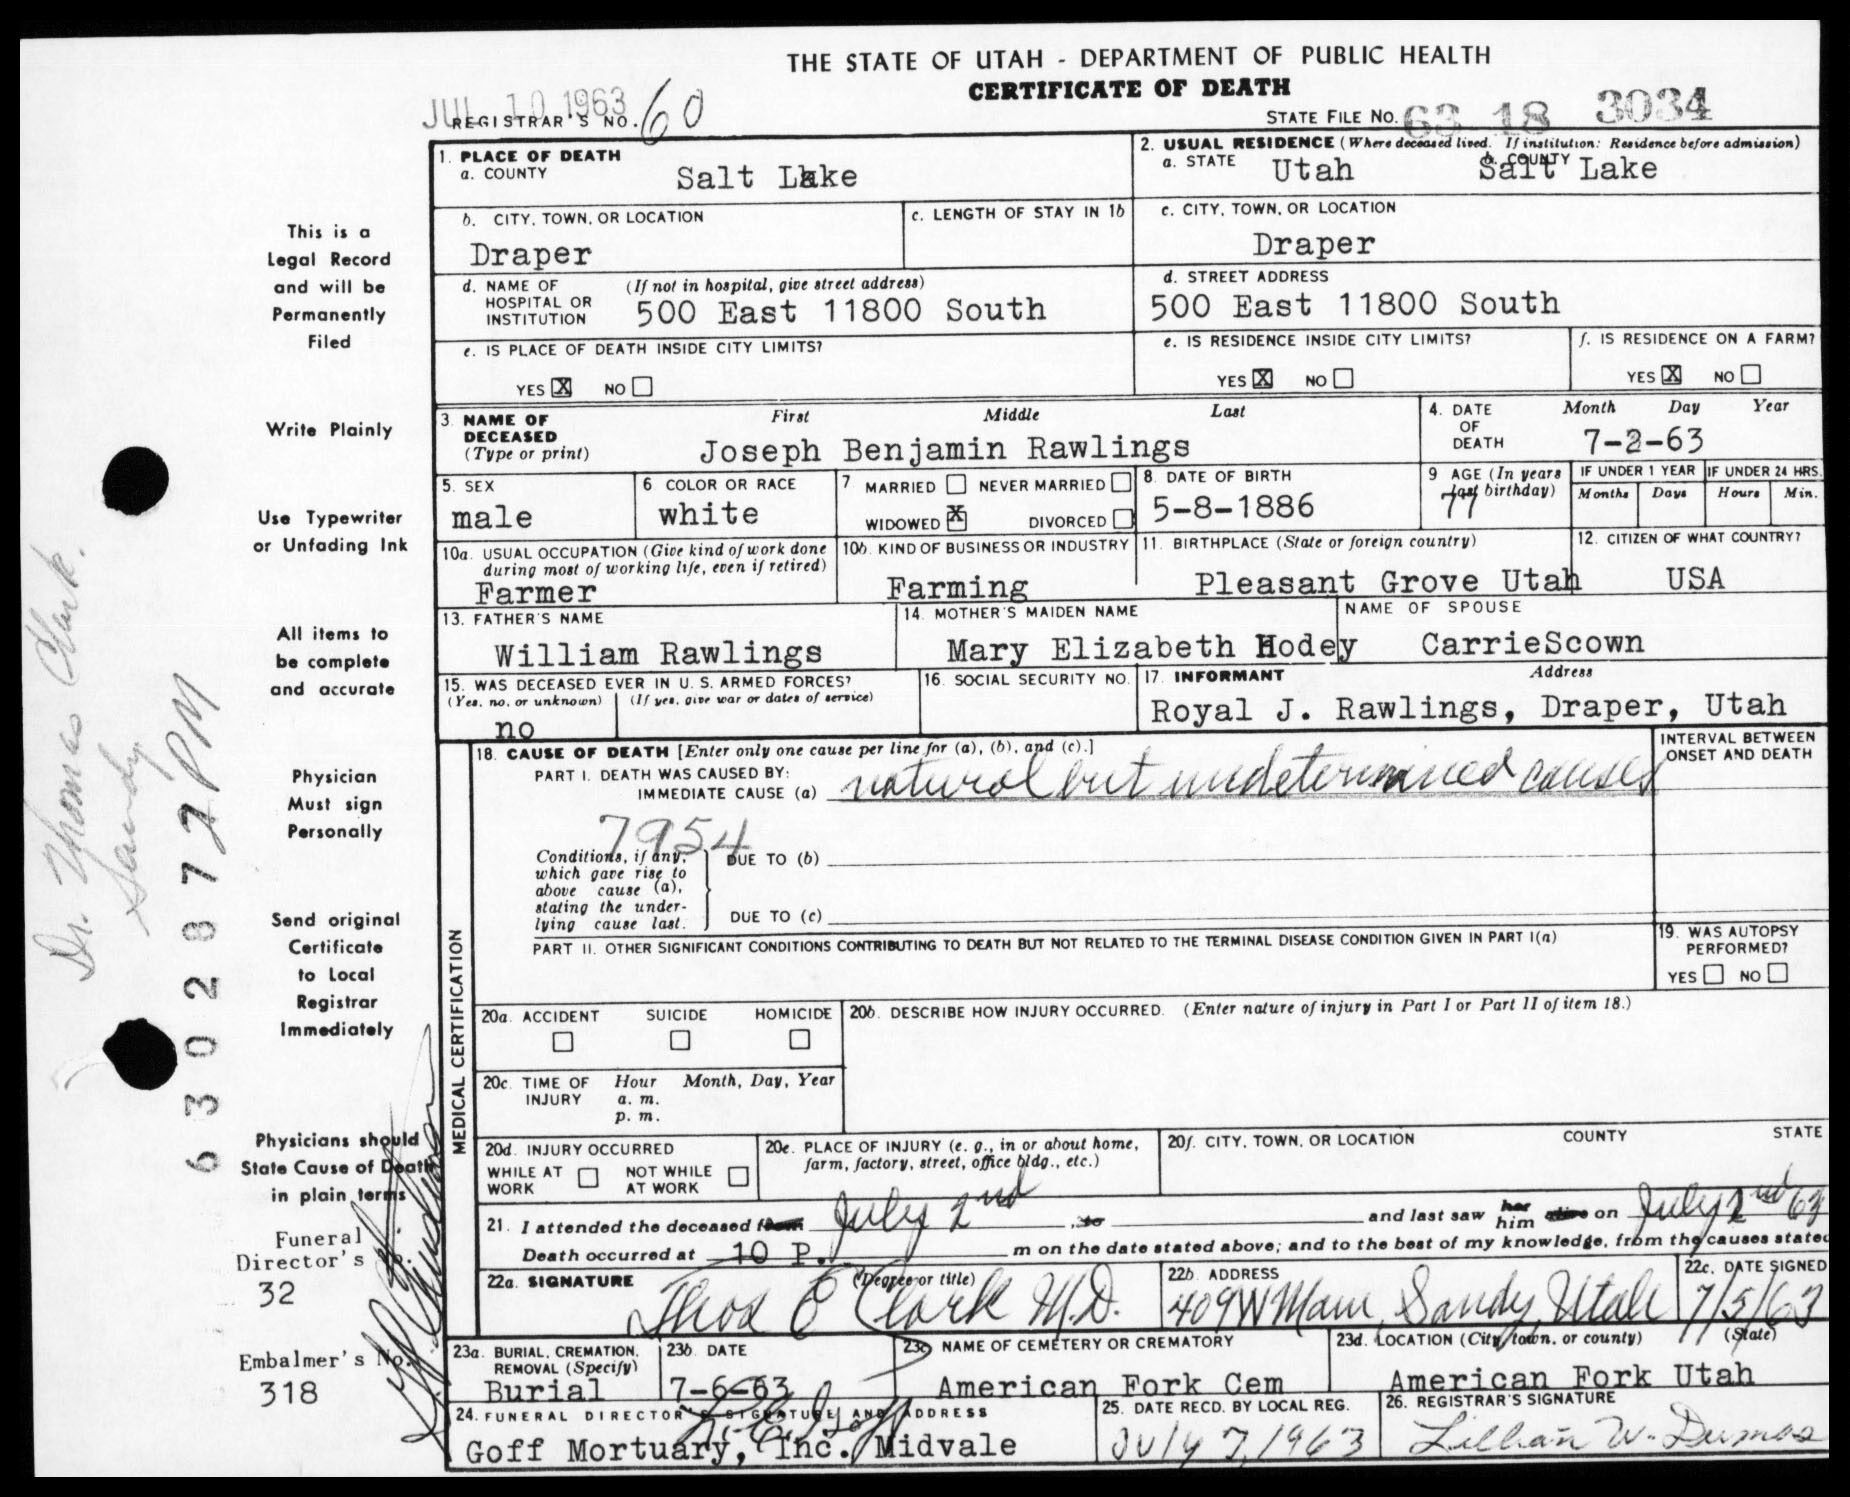 THE STATE OF UTAH - DEPARTMENT OF PUBLIC HEALTH
CERTIFICATE OF DEATH
JUL 10 1963
REGISTRAR'S NO. 60
STATE FILE NO. 63 18 3034
1. PLACE OF DEATH
a. COUNTY Salt Lake
2. USUAL RESIDENCE (Where deceased lived. If institution: Residence before admission)
a. STATE Utah b. COUNTY Salt Lake
b. CITY, TOWN, OR LOCATION
Draper
c. LENGTH OF STAY IN 1b
c. CITY, TOWN, OR LOCATION
Draper
d. NAME OF HOSPITAL OR INSTITUTION (If not in hospital, give street address)
500 East 11800 South
d. STREET ADDRESS
500 East 11800 South
e. IS PLACE OF DEATH INSIDE CITY LIMITS?
YES X NO
e. IS RESIDENCE INSIDE CITY LIMITS?
YES X NO
f. IS RESIDENCE ON A FARM?
YES X NO
3. NAME OF DECEASED (Type or print)
First Middle Last
Joseph Benjamin Rawlings
4. DATE OF DEATH
Month Day Year
7-2-63
5. SEX
male
6 COLOR OR RACE
white
7 MARRIED NEVER MARRIED
WIDOWED X DIVORCED
8. DATE OF BIRTH
5-8-1886
9 AGE (In years last birthday)
77
IF UNDER 1 YEAR
Months Days
IF UNDER 24 HRS.
Hours Min.
10a. USUAL OCCUPATION (Give kind of work done during most of working life, even if retired)
Farmer
10b. KIND OF BUSINESS OR INDUSTRY
Farming
11. BIRTHPLACE (State or foreign country)
Pleasant Grove Utah
12. CITIZEN OF WHAT COUNTRY?
USA
13. FATHER'S NAME
William Rawlings
14. MOTHER'S MAIDEN NAME
Mary Elizabeth Hodey
NAME OF SPOUSE
CarrieScown
15. WAS DECEASED EVER IN U. S. ARMED FORCES?
(Yes, no, or unknown) (If yes, give war or dates of service)
no
16. SOCIAL SECURITY NO.
17. INFORMANT Address
Royal J. Rawlings, Draper, Utah
MEDICAL CERTIFICATION
18. CAUSE OF DEATH [Enter only one cause per line for (a), (b), and (c).]
INTERVAL BETWEEN ONSET AND DEATH
PART I. DEATH WAS CAUSED BY:
IMMEDIATE CAUSE (a) natural but undetermined causes
7954
Conditions, if any, which gave rise to above cause (a), stating the underlying cause last.
DUE TO (b)
DUE TO (c)
PART II. OTHER SIGNIFICANT CONDITIONS CONTRIBUTING TO DEATH BUT NOT RELATED TO THE TERMINAL DISEASE CONDITION GIVEN IN PART I(a)
19. WAS AUTOPSY PERFORMED?
YES NO
20a. ACCIDENT SUICIDE HOMICIDE
20b. DESCRIBE HOW INJURY OCCURRED. (Enter nature of injury in Part I or Part II of item 18.)
20c. TIME OF INJURY
Hour Month, Day, Year
a. m.
p. m.
20d. INJURY OCCURRED
WHILE AT WORK NOT WHILE AT WORK
20e. PLACE OF INJURY (e. g., in or about home, farm, factory, street, office bldg., etc.)
20f. CITY, TOWN, OR LOCATION COUNTY STATE
21. I attended the deceased from July 2nd, to and last saw her him alive on July 2nd 63
Death occurred at 10 P. m on the date stated above; and to the best of my knowledge, from the causes stated
22a. SIGNATURE (Degree or title)
Thos E Clark M.D.
22b. ADDRESS
409 W Main, Sandy, Utah
22c. DATE SIGNED
7/5/63
23a. BURIAL, CREMATION, REMOVAL (Specify)
Burial
23b. DATE
7-6-63
23c NAME OF CEMETERY OR CREMATORY
American Fork Cem
23d. LOCATION (City, town, or county) (State)
American Fork Utah
24. FUNERAL DIRECTOR'S SIGNATURE AND ADDRESS
Goff Mortuary, Inc. Midvale
25. DATE RECD. BY LOCAL REG.
July 7, 1963
26. REGISTRAR'S SIGNATURE
Lillian W. Dumas
This is a
Legal Record
and will be
Permanently
Filed
Write Plainly
Use Typewriter
or Unfading Ink
All items to
be complete
and accurate
Physician
Must sign
Personally
Send original
Certificate
to Local
Registrar
Immediately
Physicians should
State Cause of Death
in plain terms
Funeral
Director's No.
32
Embalmer's No.
318
Dr. Thomas Clark.
Sandy
6302872PM